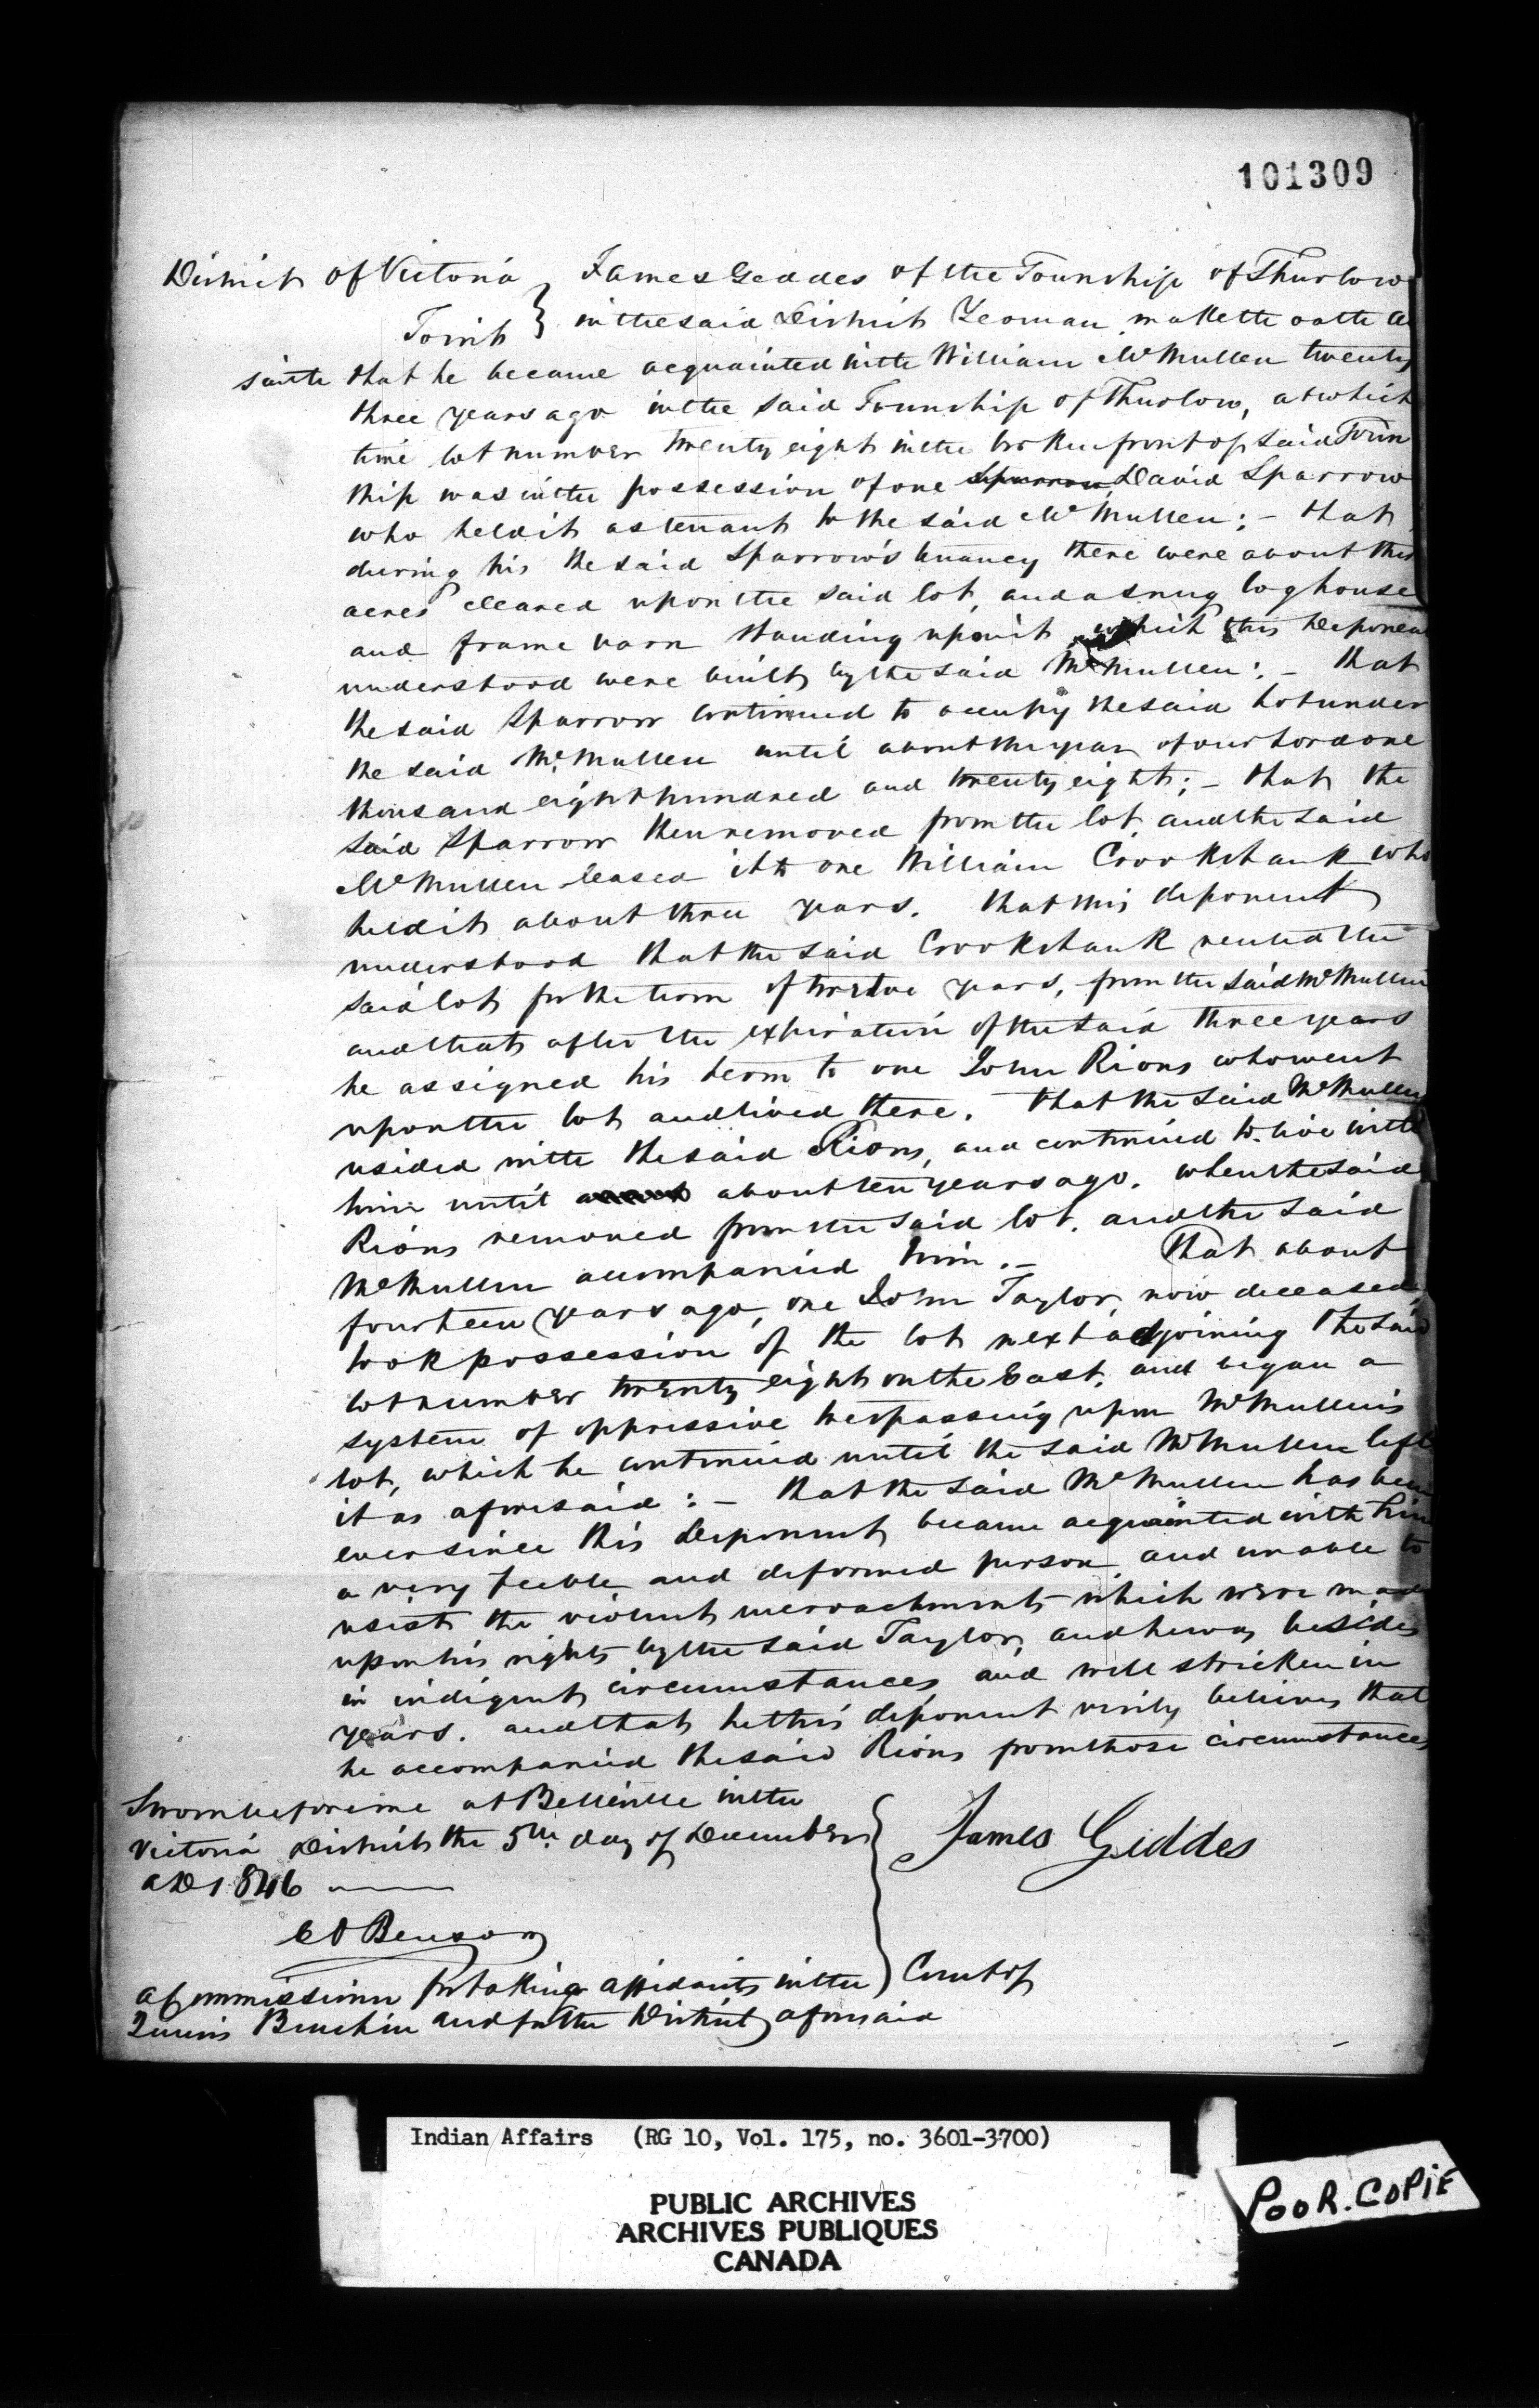 101309
District of Victoria } James Geddes of the Township of Thurlow
To wit } in the said District Yeoman maketh oath
saith that he became acquainted with William McMullen twenty
three years ago in the said Township of Thurlow, at which
time lot number twenty eight in the broken front of said Town
ship was in the possession of one Sparrow, David Sparrow
who held it as tenant to the said McMullen; – that
during his the said Sparrow's tenancy there were about
acres cleared upon the said lot, and a snug log house
and frame barn standing upon it, which this Deponent
understood were built by the said McMullen: – that
the said Sparrow continued to occupy the said lot under
the said McMullen until about the year of our Lord one
thousand eight hundred and twenty eight; – that the
said Sparrow then removed from the lot and the said
McMullen leased it to one William Crookshank who
held it about three years. that this deponent
understood that the said Crookshank rented the
said lot for the term of twelve years, from the said McMullen
and that after the expiration of the said three years
he assigned his term to one John Rions who went
upon the lot and lived there. that the said McMullen
resided with the said Rions, and continued to live with
him until about ten years ago. when the said
Rions removed from the said lot. and the said
McMullen accompanied him. – That about
fourteen years ago, one John Taylor, now deceased,
took possession of the lot next adjoining the said
lot number twenty eight on the East, and began a
system of oppressive trespassing upon McMullen's
lot, which he continued until the said McMullen left
it as aforesaid: – that the said McMullen has been
ever since this deponent became acquainted with him
a very feeble and deformed person and unable to
resist the violent encroachments which were made
upon his rights by the said Taylor, and he was besides
in indigent circumstances and well stricken in
years. and that he this deponent verily believes that
he accompanied the said Rions from those circumstances
Sworn before me at Belleville in the
Victoria District the 5th day of December
AD 1846
James Giddes
Benson
a Commissioner for taking affidavits in the Court of
Queen's Bench in and for the District aforesaid
Indian Affairs (RG 10, Vol. 175, no. 3601-3700)
PUBLIC ARCHIVES
ARCHIVES PUBLIQUES
CANADA
POOR.COPIE